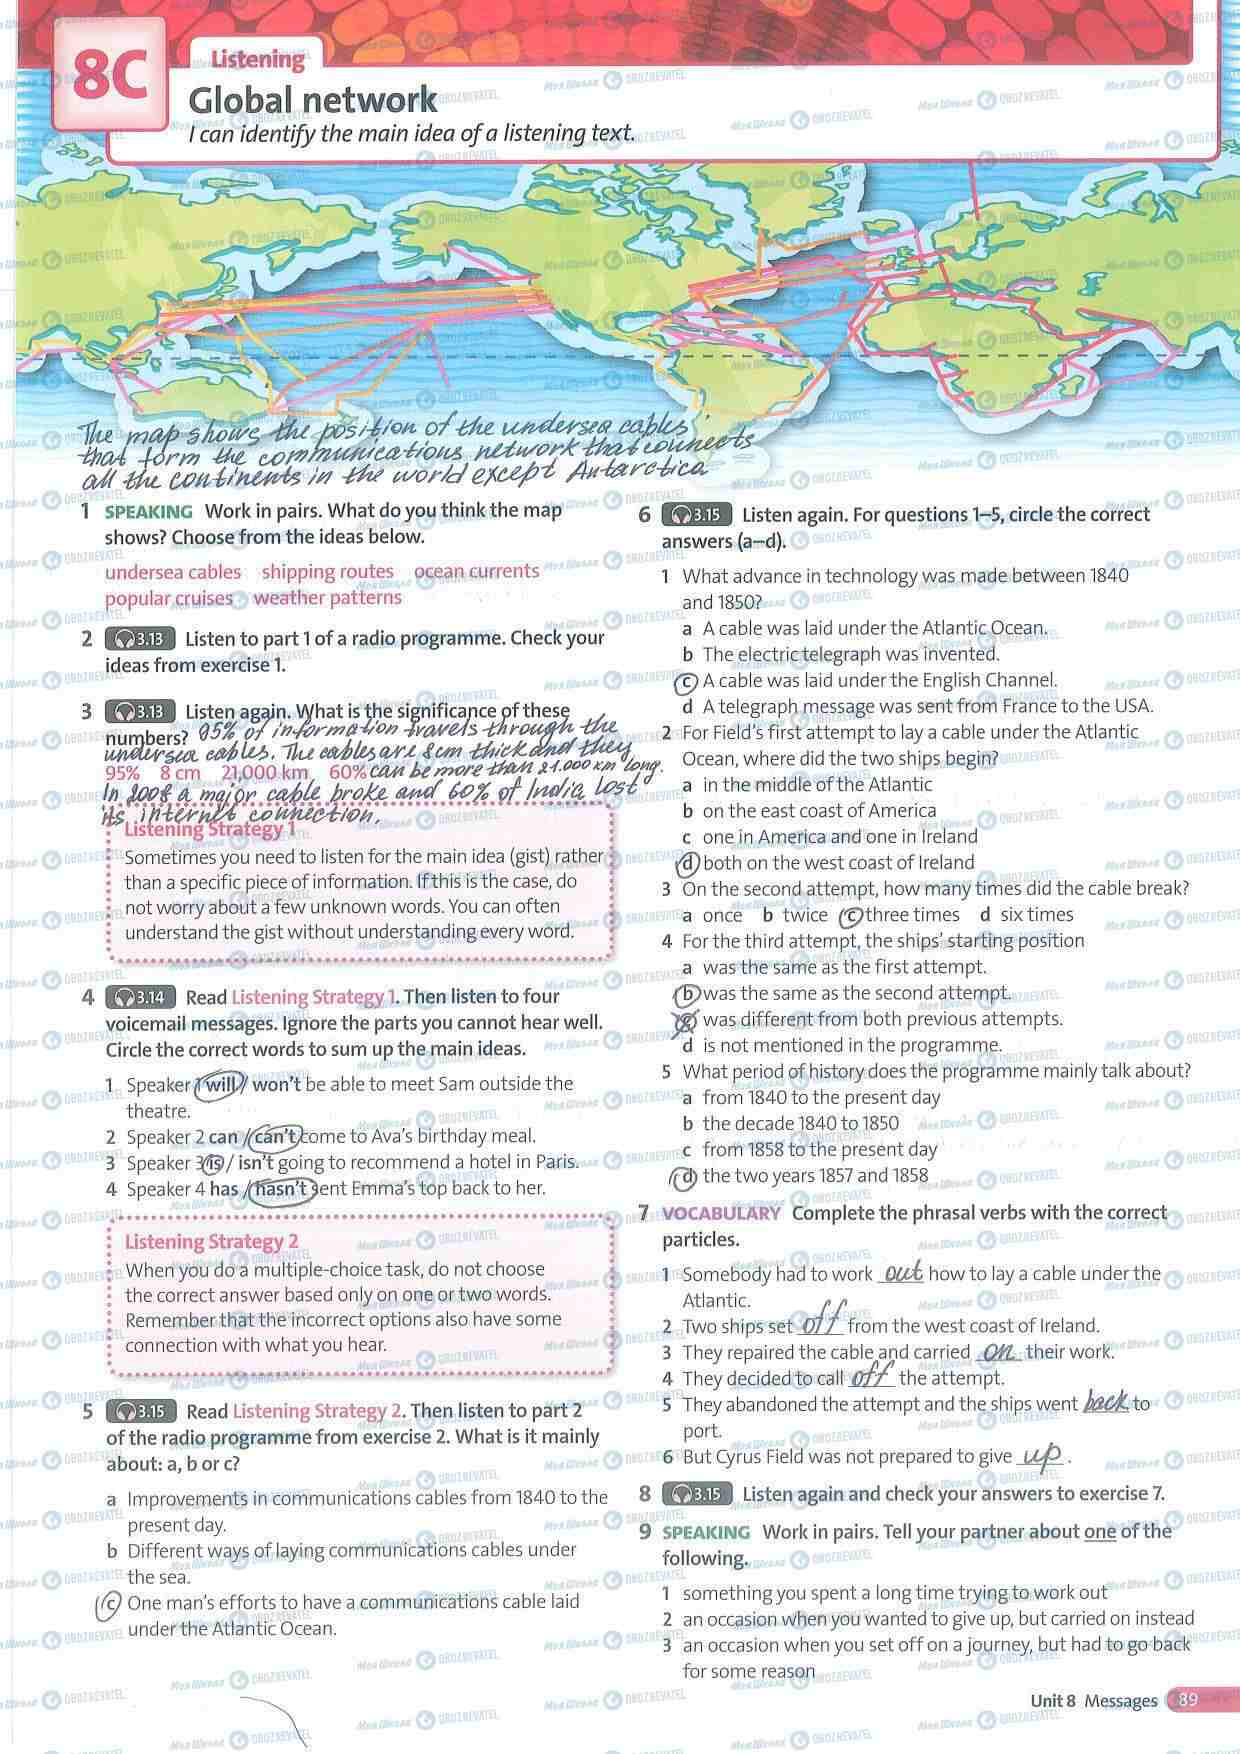 8C
Listening
Global network
I can identify the main idea of a listening text.
The map shows the position of the undersea cables
that form the communications network that connects
all the continents in the world except Antarctica
1 SPEAKING Work in pairs. What do you think the map
shows? Choose from the ideas below.
undersea cables shipping routes ocean currents
popular cruises weather patterns
2 3.13 Listen to part 1 of a radio programme. Check your
ideas from exercise 1.
3 3.13 Listen again. What is the significance of these
numbers? 95% of information travels through the
undersea cables. The cables are 8cm thick and they
95% 8 cm 21,000 km 60% can be more than 21.000 km long.
In 2008 a major cable broke and 60% of India lost
its internet connection.
Listening Strategy 1
Sometimes you need to listen for the main idea (gist) rather
than a specific piece of information. If this is the case, do
not worry about a few unknown words. You can often
understand the gist without understanding every word.
4 3.14 Read Listening Strategy 1. Then listen to four
voicemail messages. Ignore the parts you cannot hear well.
Circle the correct words to sum up the main ideas.
1 Speaker 1 will / won't be able to meet Sam outside the
theatre.
2 Speaker 2 can / can't come to Ava's birthday meal.
3 Speaker 3 is / isn't going to recommend a hotel in Paris.
4 Speaker 4 has / hasn't sent Emma's top back to her.
Listening Strategy 2
When you do a multiple-choice task, do not choose
the correct answer based only on one or two words.
Remember that the incorrect options also have some
connection with what you hear.
5 3.15 Read Listening Strategy 2. Then listen to part 2
of the radio programme from exercise 2. What is it mainly
about: a, b or c?
a Improvements in communications cables from 1840 to the
present day.
b Different ways of laying communications cables under
the sea.
c One man's efforts to have a communications cable laid
under the Atlantic Ocean.
6 3.15 Listen again. For questions 1–5, circle the correct
answers (a–d).
1 What advance in technology was made between 1840
and 1850?
a A cable was laid under the Atlantic Ocean.
b The electric telegraph was invented.
c A cable was laid under the English Channel.
d A telegraph message was sent from France to the USA.
2 For Field's first attempt to lay a cable under the Atlantic
Ocean, where did the two ships begin?
a in the middle of the Atlantic
b on the east coast of America
c one in America and one in Ireland
d both on the west coast of Ireland
3 On the second attempt, how many times did the cable break?
a once b twice c three times d six times
4 For the third attempt, the ships' starting position
a was the same as the first attempt.
b was the same as the second attempt.
c was different from both previous attempts.
d is not mentioned in the programme.
5 What period of history does the programme mainly talk about?
a from 1840 to the present day
b the decade 1840 to 1850
c from 1858 to the present day
d the two years 1857 and 1858
7 VOCABULARY Complete the phrasal verbs with the correct
particles.
1 Somebody had to work out how to lay a cable under the
Atlantic.
2 Two ships set off from the west coast of Ireland.
3 They repaired the cable and carried on their work.
4 They decided to call off the attempt.
5 They abandoned the attempt and the ships went back to
port.
6 But Cyrus Field was not prepared to give up.
8 3.15 Listen again and check your answers to exercise 7.
9 SPEAKING Work in pairs. Tell your partner about one of the
following.
1 something you spent a long time trying to work out
2 an occasion when you wanted to give up, but carried on instead
3 an occasion when you set off on a journey, but had to go back
for some reason
Unit 8 Messages 89